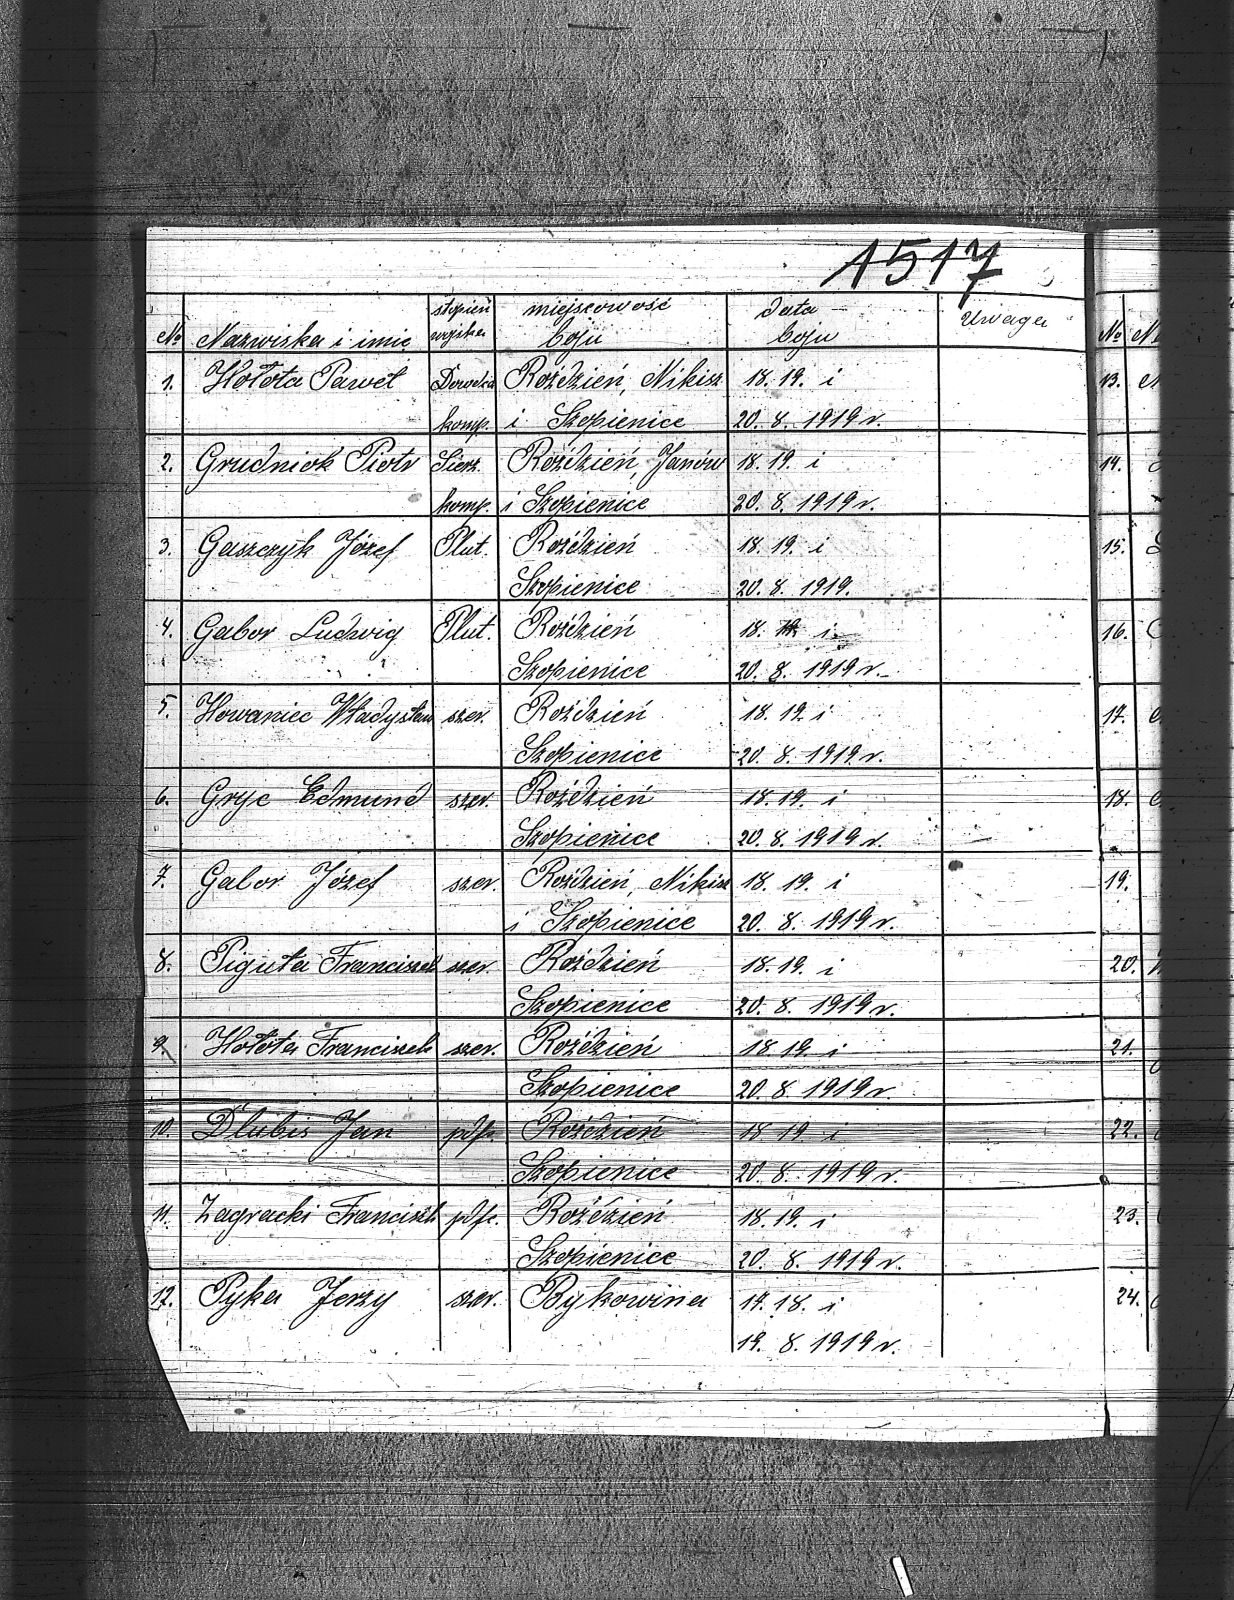 1517
No Nazwiska i imię stopień wojska miejscowość boju data boju Uwaga
1. Hołota Paweł Dowódca Roździeń, Nikisz 18. 19. i
komp. i Szopienice 20. 8. 1919 r.
2. Grudniok Piotr Sierż. Roździeń, Janów 18. 19. i
komp. i Szopienice 20. 8. 1919 r.
3. Gaszczyk Józef Plut. Roździeń 18. 19. i
Szopienice 20. 8. 1919.
4. Gabor Ludwig Plut. Roździeń 18. 19. i
Szopienice 20. 8. 1919 r.
5. Howaniec Władysław szer. Roździeń 18. 19. i
Szopienice 20. 8. 1919 r.
6. Gryc Edmund szer. Roździeń 18. 19. i
Szopienice 20. 8. 1919 r.
7. Gabor Józef szer. Roździeń, Nikisz 18. 19. i
i Szopienice 20. 8. 1919 r.
8. Piguła Franciszek szer. Roździeń 18. 19. i
Szopienice 20. 8. 1919 r.
9. Hołota Franciszek szer. Roździeń 18. 19. i
Szopienice 20. 8. 1919 r.
10. Dlubis Jan pdfr. Roździeń 18 19. i
Szopienice 20. 8. 1919 r.
11. Zagracki Franciszek pdfr. Roździeń 18. 19. i
Szopienice 20. 8. 1919 r.
12. Pyka Jerzy szer. Bykowina 17. 18. i
19. 8. 1919 r.
No
13.
14.
15.
16.
17.
18.
19.
20.
21.
22.
23.
24.